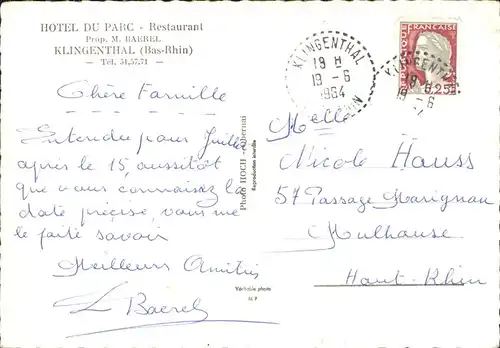 HOTEL DU PARC - Restaurant
Prop. M. BAEREL
KLINGENTHAL (Bas-Rhin)
— Tél. 51,57,71 —
Chère Famille
Entendu pour Juillet
après le 15, aussitôt
que vous connaissez la
date précise, vous me
le faite savoir
Meilleurs Amitiés
L Baerel
Photo HOCH - Obernai
Reproduction interdite
Véritable photo
KLINGENTHAL
19 H
19 - 6
1964
RHIN
KLINGENTHAL
19 H
19 - 6
FRANÇAISE
0,25
Melle
Nicole Hauss
57 Passage Marignan
Mulhouse
Haut-Rhin